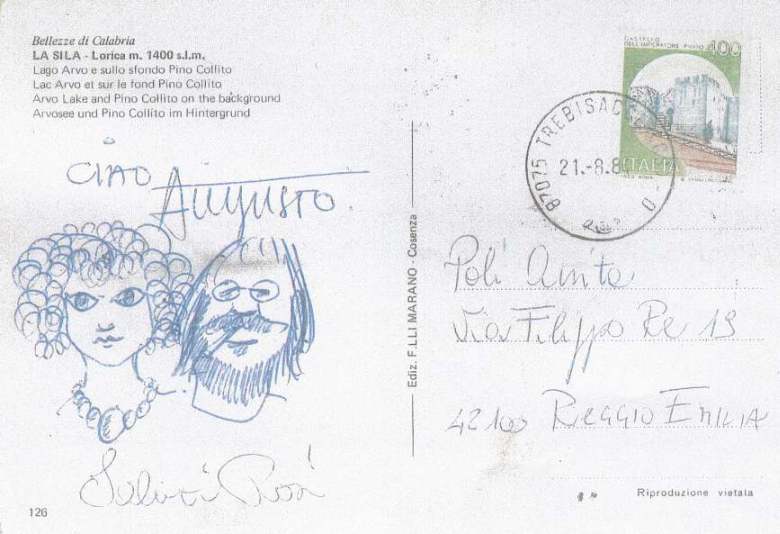 Bellezze di Calabria
LA SILA - Lorica m. 1400 s.l.m.
Lago Arvo e sullo sfondo Pino Collito
Lac Arvo et sur le fond Pino Collito
Arvo Lake and Pino Collito on the background
Arvosee und Pino Collito im Hintergrund
CIAO
AUGUSTO
Saluti Rosi
126
Ediz. F.LLI MARANO - Cosenza
CASTELLO
DELL'IMPERATORE PRATO 400
ITALIA
87075 TREBISACCE
21.-8.8
Poli Anita
Via Filippo Re 19
42100 REGGIO EMILIA
Riproduzione vietata